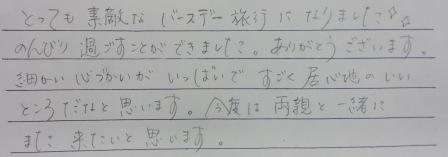 とっても 素敵な バースデー旅行になりました☆☆
のんびり過ごすことができました。ありがとうございます。
細かい心づかいがいっぱいですごく居心地のいい
ところだなと思います。今度は両親と一緒に
また来たいと思います。